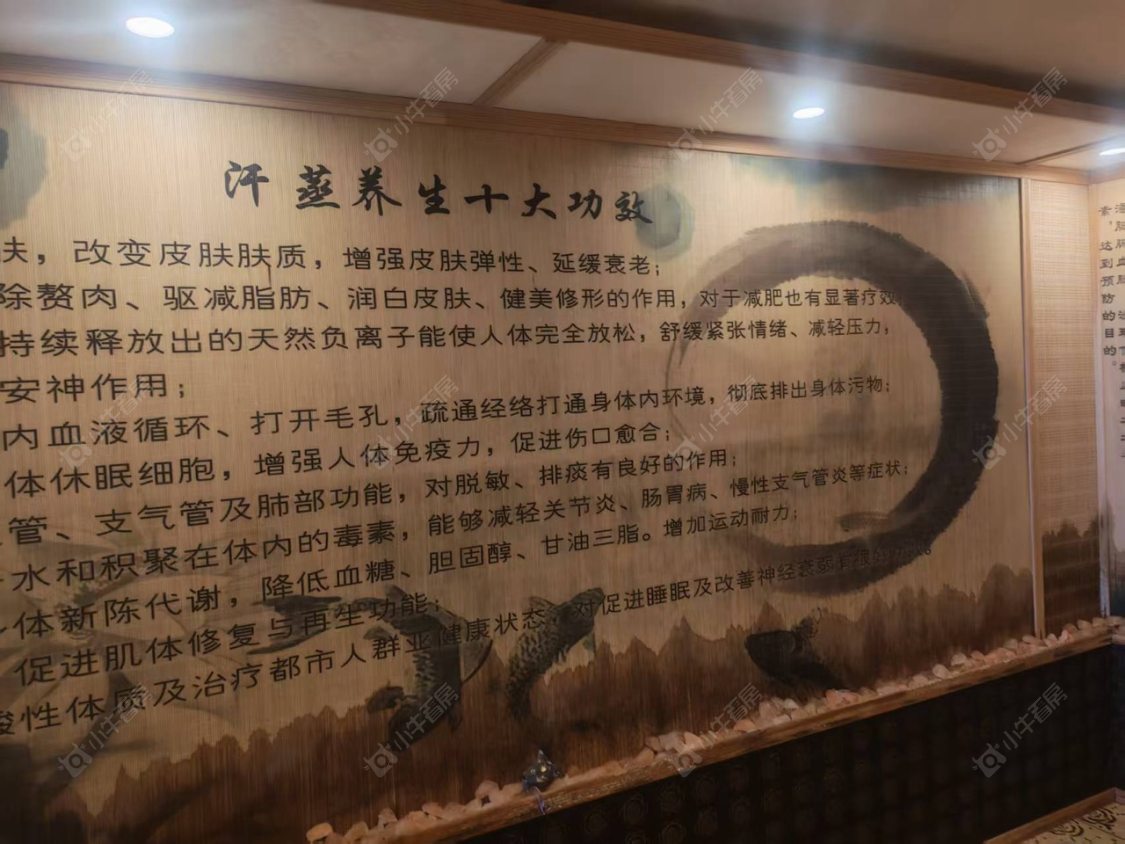 汗蒸养生十大功效
肤，改变皮肤肤质，增强皮肤弹性、延缓衰老；
除赘肉、驱减脂肪、润白皮肤、健美修形的作用，对于减肥也有显著疗效；
持续释放出的天然负离子能使人体完全放松，舒缓紧张情绪、减轻压力；
安神作用；
内血液循环、打开毛孔，疏通经络打通身体内环境，彻底排出身体污物；
体休眠细胞，增强人体免疫力，促进伤口愈合；
管、支气管及肺部功能，对脱敏、排痰有良好的作用；
水和积聚在体内的毒素，能够减轻关节炎、肠胃病、慢性支气管炎等症状；
体新陈代谢，降低血糖、胆固醇、甘油三脂。增加运动耐力；
促进肌体修复与再生功能；
酸性体质及治疗都市人群亚健康状态，对促进睡眠及改善神经衰弱有很
素，达到预防的目的。
小牛看房